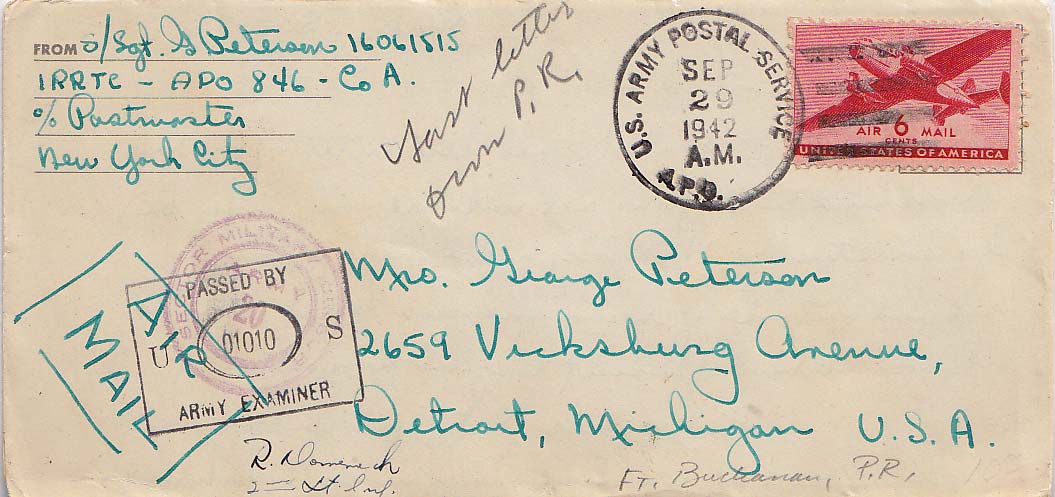 FROM S/Sgt. G Peterson 16061515
IRRTC - APO 846 - Co A.
% Postmaster
New York City
Last letter
from P.R.
U.S. ARMY POSTAL SERVICE
SEP
29
1942
A.M.
A.P.O.
AIR 6 MAIL
CENTS
UNITED STATES OF AMERICA
AIR
MAIL
MILITARY
20
PASSED BY
U 01010 S
ARMY EXAMINER
Mrs. George Peterson
2659 Vicksburg Avenue,
Detroit, Michigan U.S.A.
R. Domenech
2nd Lt. Inf.
FT. Buchanan, P.R.